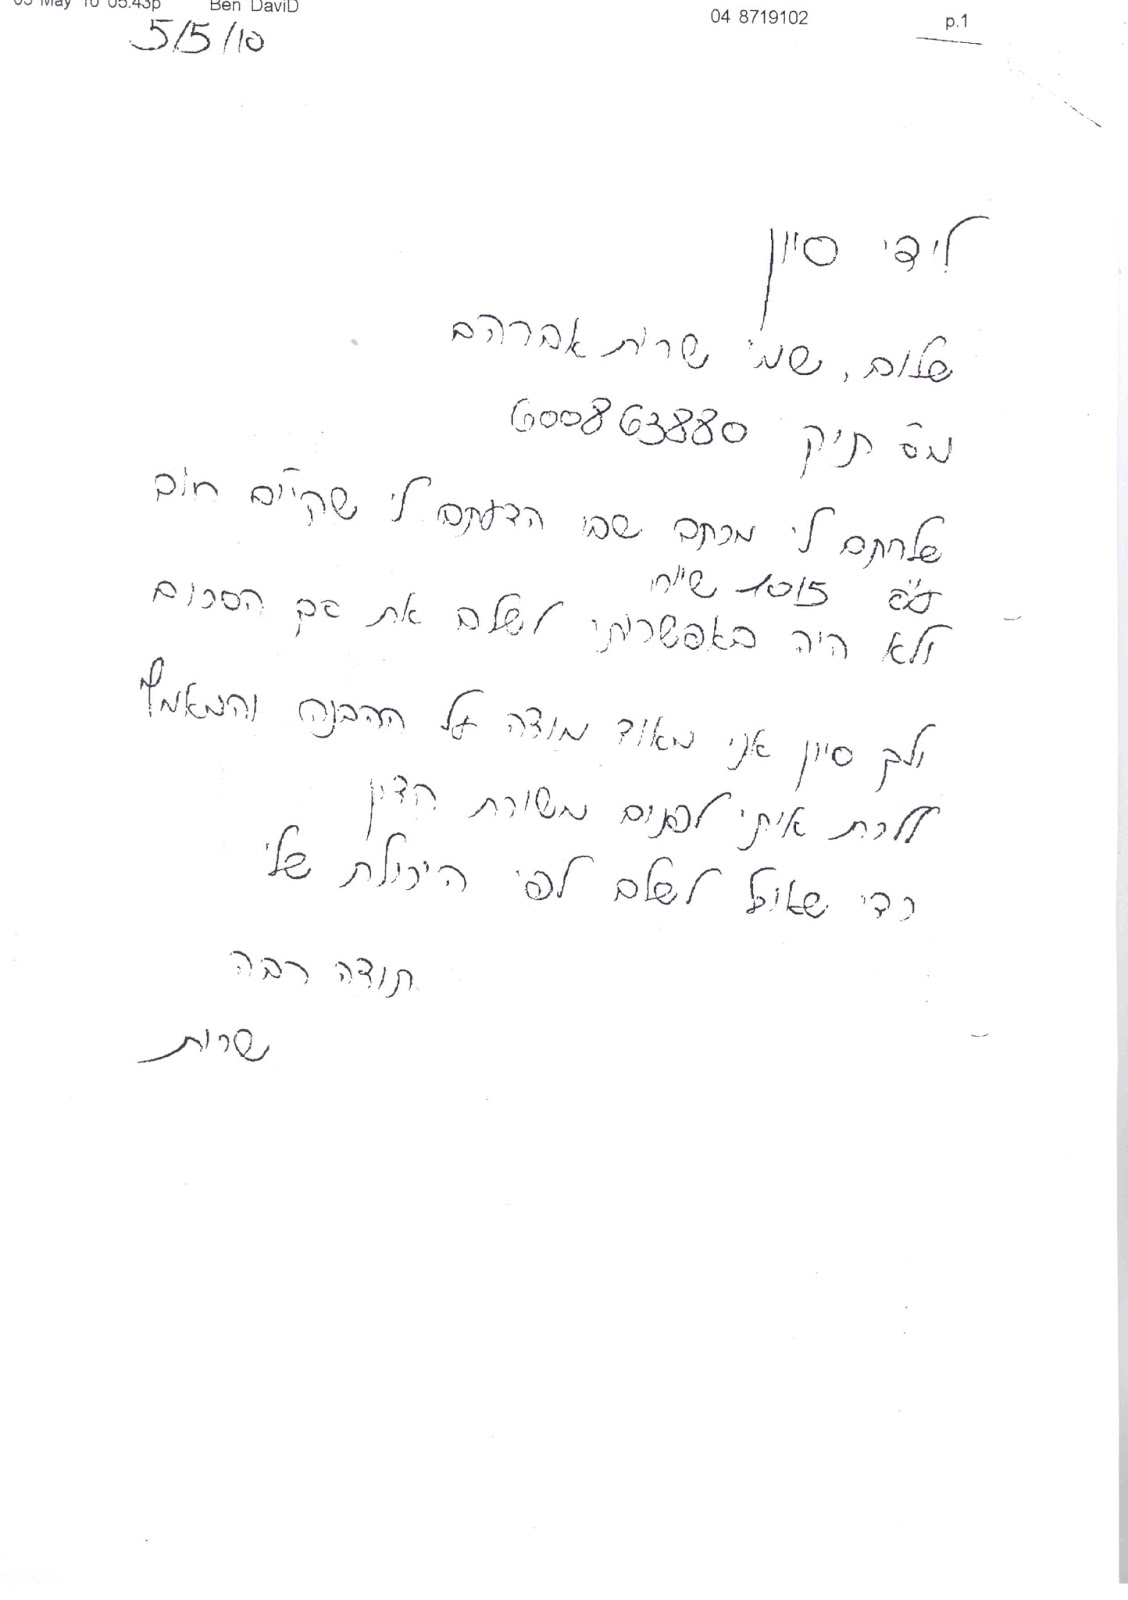 05 May 10 05:43p Ben DaviD 04 8719102 p.1
5/5/10
לידי סיון
שלום, שמי שרית אברהם
מס תיק 600863880
שלחתם לי מכתב שבו הדעתם לי שקיים חוב
ע"ס 1015 ש"ח
ולא היה באפשרותי לשלם את כל הסכום
ולך סיון אני מאוד מודה על ההבנה והמאמץ
ללכת איתי לפנים משורת הדין
כדי שאוכל לשלם לפי היכולת שלי
תודה רבה
שרית